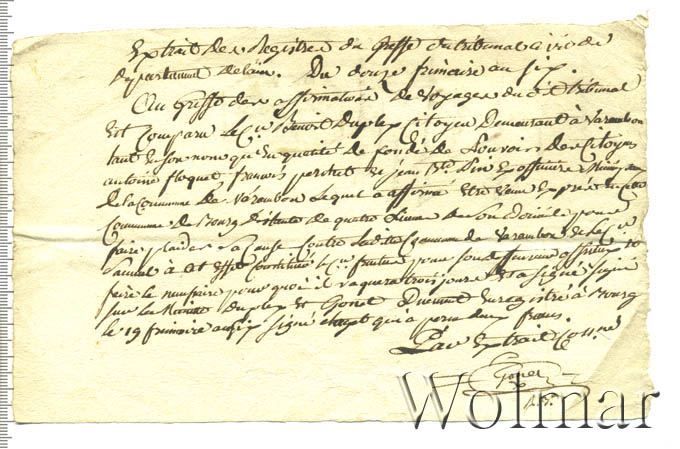 Extrait des Registres du Greffe du tribunal civil du
département de l'ain. Du douze frimaire an six.
Au Greffe des affirmations de voyages du dit tribunal
Est comparu le Cen Benoit Duplex Citoyen Demeurant à Varambon
tant en son nom qu'en qualité de fondé de Pouvoir des Citoyens
antoine floquet francois perdrix et jean Bte
de la Commune de Varambon Lequel a affirmé Etre venu Exprès en cette
Commune de Bourg distante de quatre Lieues de son domicile pour
faire plaider sa Cause Contre la ditte Commune de Varambon
à cet effet Constitué le Cen pour son deffenseur officieux
faire le pourquoi il vaquera trois jours Et a signé signé
sur la Duplex Et Gonet Duement Enregistré à Bourg
le 19 frimaire an six signé qui a perçu deux francs.
Par extrait
Gonet
Wolmar